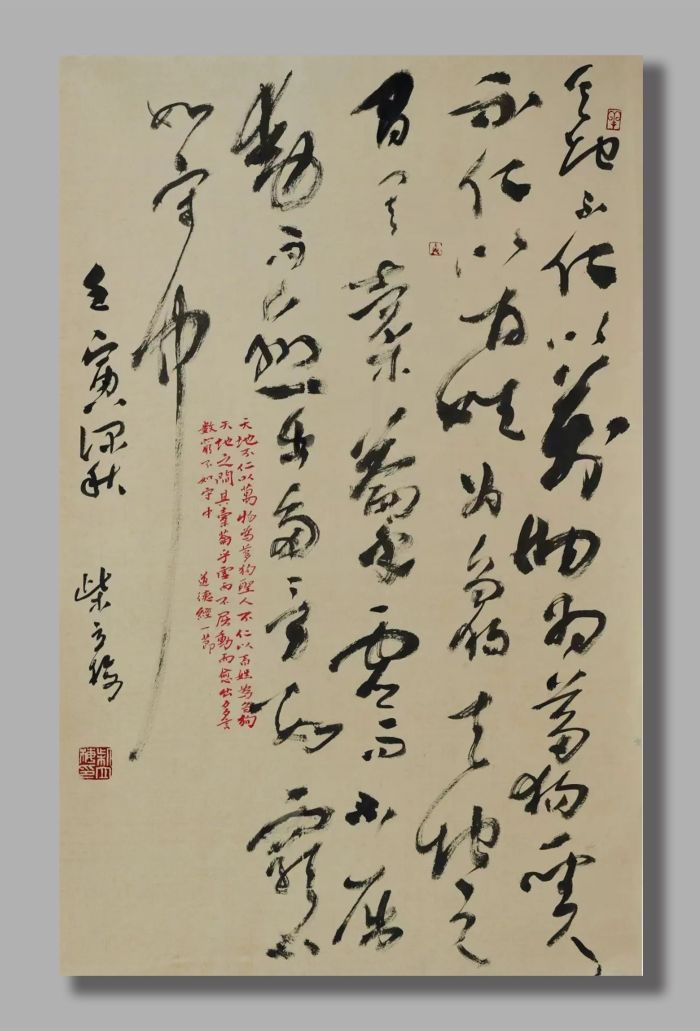 天地不仁以萬物為芻狗聖人
不仁以百姓為芻狗天地之
間其橐籥乎虛而不屈
動而愈出多言數窮不
如守中
天地不仁以萬物為芻狗聖人不仁以百姓為芻狗
天地之間其橐籥乎虛而不屈動而愈出多言
數窮不如守中 道德經一節
壬寅深秋 柴立梅